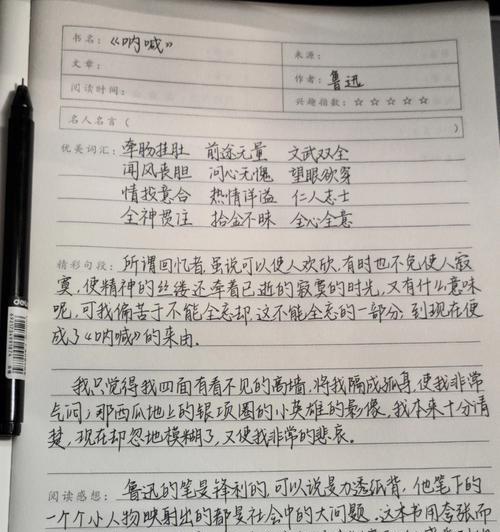 书名：《呐喊》
来源：
文章：
作者：鲁迅
阅读时间：
兴趣指数：☆☆☆☆☆
名人名言（ ）
优美词汇：牵肠挂肚 前途无量 文武双全
闻风丧胆 问心无愧 望眼欲穿
情投意合 热情洋溢 仁人志士
全神贯注 拾金不昧 全心全意
精彩句段：所谓回忆者，虽说可以使人欢欣，有时也不免使人寂
寞，使精神的丝缕还牵着已逝的寂寞的时光，又有什么意味
呢，可我偏苦于不能全忘却，这不能全忘的一部分，到现在便
成了《呐喊》的来由。
我只觉得我四面有看不见的高墙，将我隔成孤身，使我非常
气闷；那西瓜地上的银项圈的小英雄的影像，我本来十分清
楚，现在却忽地模糊了，又使我非常的悲哀。
阅读感想：鲁迅的笔是锋利的，可以说是力透纸背，他笔下的
一个个小人物映射出的都是社会中的大问题。这本书用夸张而